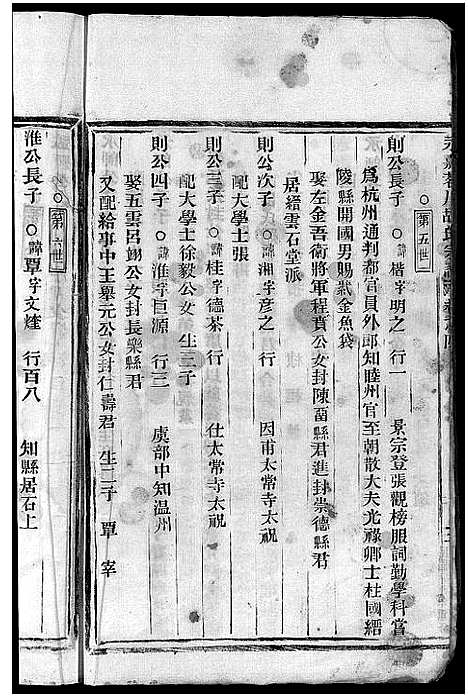 第五世
則公長子 諱楷字明之 行一 景宗登張觀榜服詞勤學科嘗
為杭州通判都官員外郎知睦州官至朝散大夫光祿卿士柱國縉
陵縣開國男賜紫金魚袋
娶左金吾衛將軍程賁公女封陳苗縣君進封崇德縣君
居縉雲石堂派
則公次子 諱湘字彥之 行 因甫太常寺太祝
配大學士張
則公三子 諱桂字德茶 行 仕太常寺太祝
配大學士徐毅公女 生三子
則公四子 諱淮字巨源 行三 虞部中知温州
娶五雲呂翊公女封長樂縣君
又配給事中王墓元公女封仁壽君 生二子 覃 宰
第六世
淮公長子 諱覃字文煃 行百八 知縣居石上